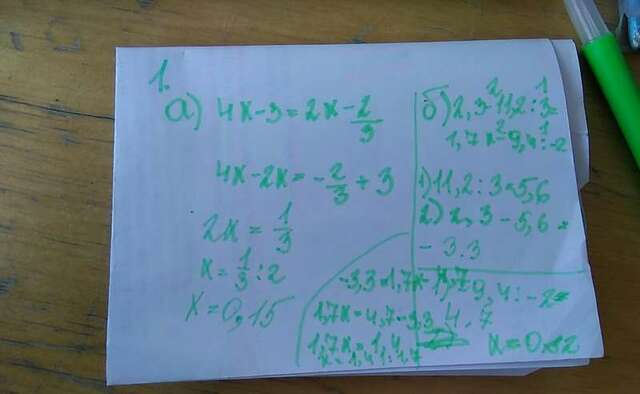 1.
а) 4x-3=2x-2/3
4x-2x=-2/3+3
2x=1/3
x=1/3:2
x=0,15
б) 2,3-11,2:3=
1,7x-9,4:-2
1) 11,2:3=5,6
2) 2,3-5,6=
-3.3
-3,3=1,7x-4,7
9,4:-2=
4.7
1,7x=4,7-3,3
1,7x=1,4
x=1,4:1,7
x=0,82